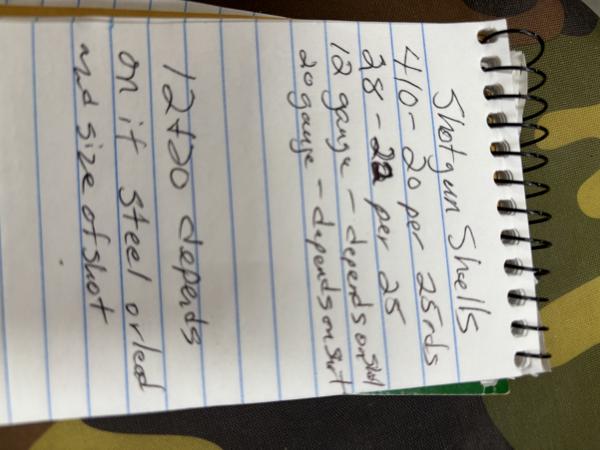 Shotgun Shells
410 - 20 per 25 rds
28 - 22 per 25
12 gauge - depends on shot
20 gauge - depends on shot
12 + 20 depends
on if steel or lead
and size of shot